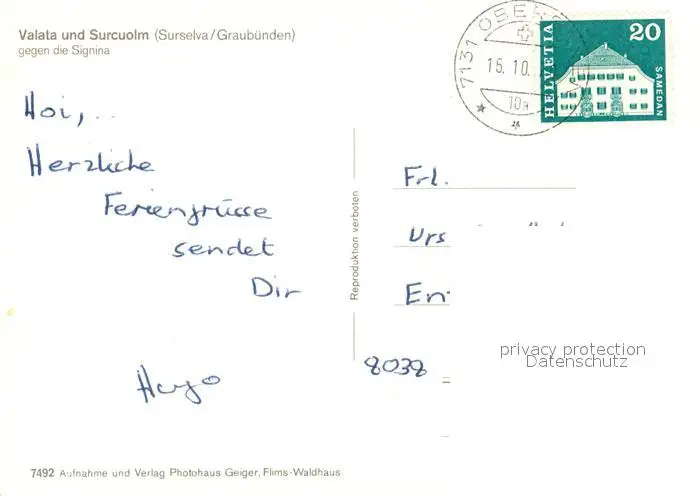 Valata und Surcuolm (Surselva/Graubünden)
gegen die Signina
7131 OBE
16.10.
10a
HELVETIA
20
SAMEDAN
Hoi,..
Herzliche
Feriengrüsse
sendet
Dir
Hugo
Reproduktion verboten
Frl.
Urs
En
8038
privacy protection
Datenschutz
7492 Aufnahme und Verlag Photohaus Geiger, Flims-Waldhaus